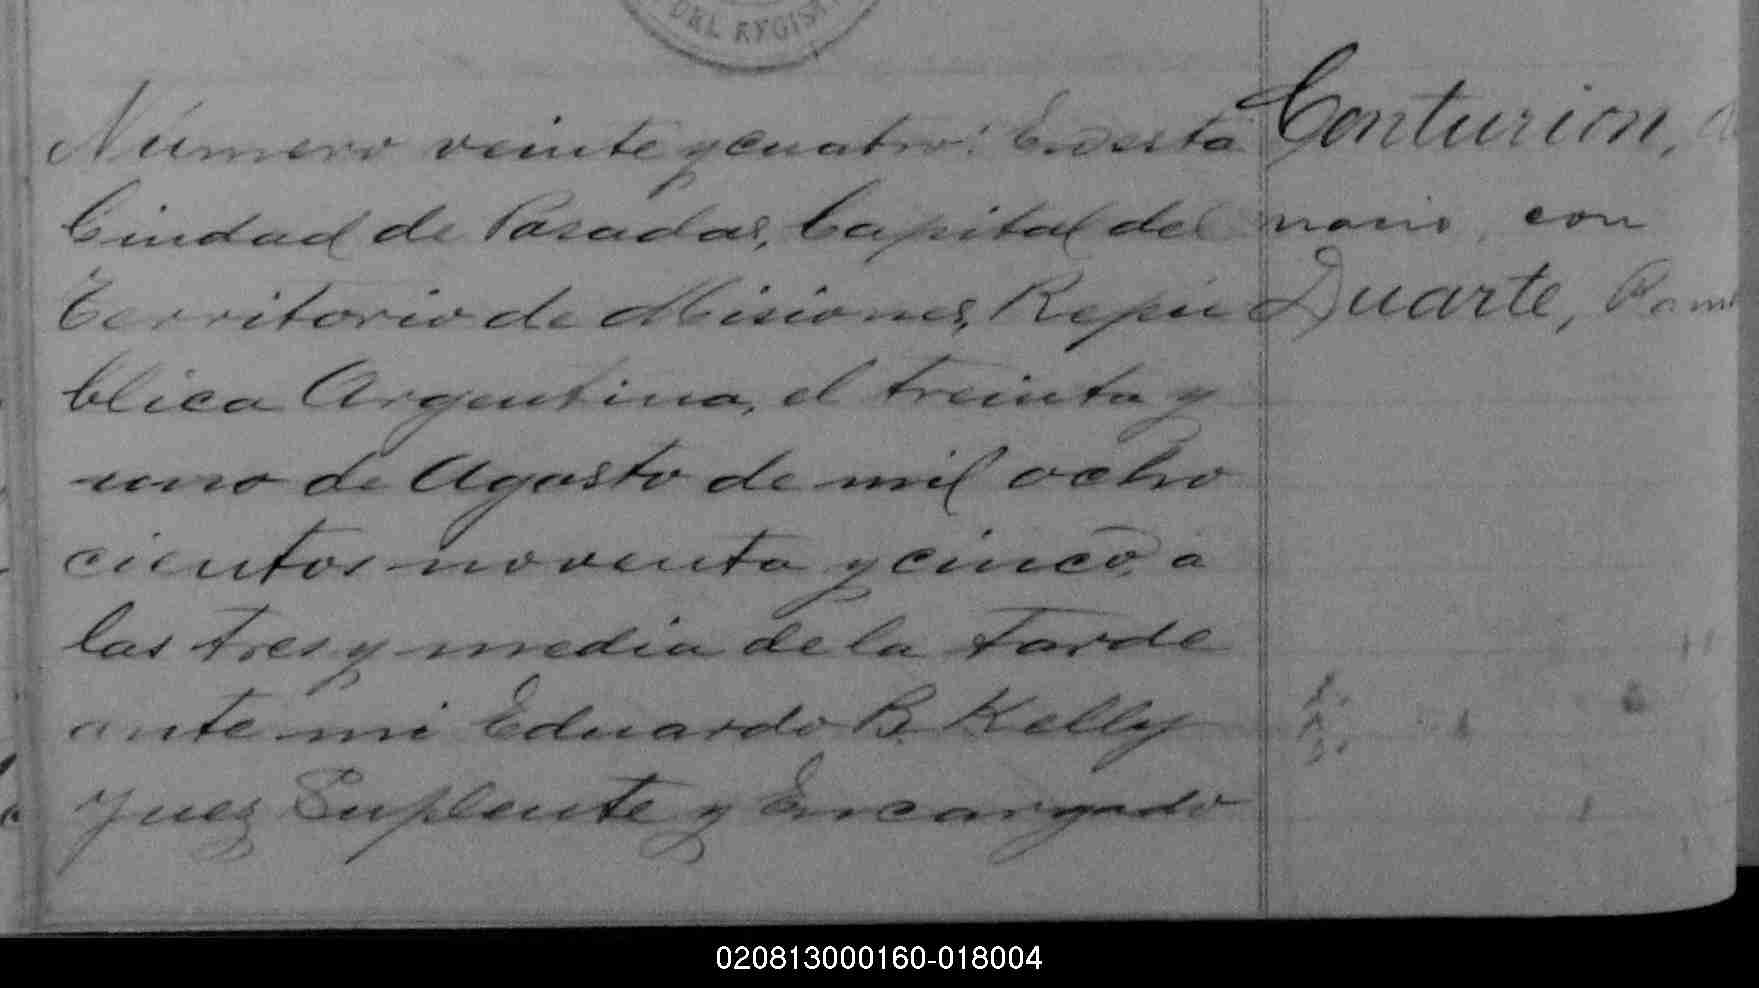 DEL REGIS
Número veinte y cuatro: En esta
Ciudad de Posadas, Capital del
Territorio de Misiones, Repú
blica Argentina, el treinta y
uno de Agosto de mil ocho
cientos noventa y cinco, a
las tres y media de la tarde
ante mi Eduardo B. Kelly
Juez Suplente y Encargado
Centurion,
nario, con
Duarte, Ram
020813000160-018004